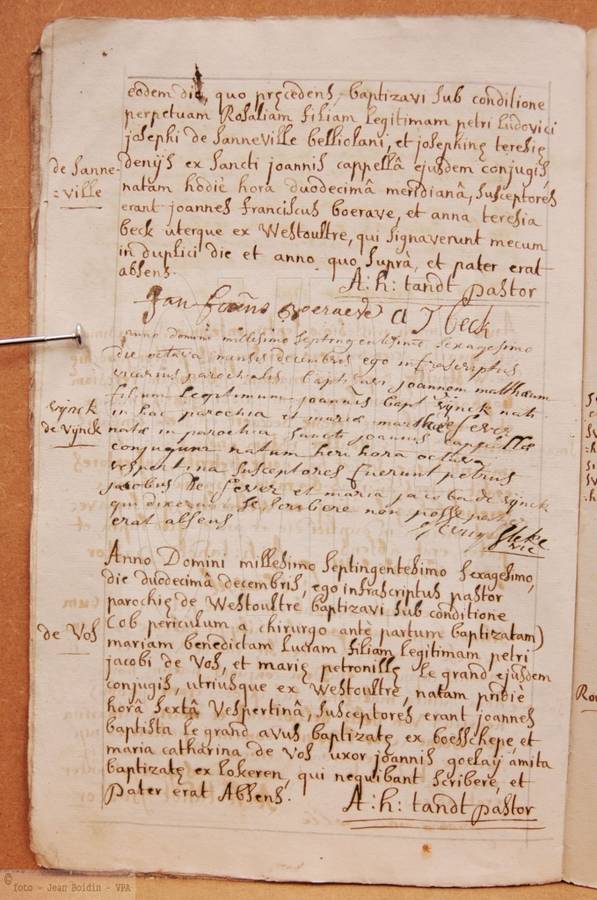 eodem die, quo præcedens, baptizavi sub conditione
perpetuam Rosaliam filiam legitimam petri ludovici
josephi de Sanneville belliolani, et josephinę teresię
denijs ex Sancti joannis cappellâ ejusdem conjugis,
de Sanne-
=ville
natam hodie hora duodecimâ meridianâ, susceptores
erant joannes franciscus boerave, et anna teresia
beck uterque ex Westoultre, qui signaverunt mecum
in duplici die et anno quo suprà, et pater erat
absens.
A: h: tandt pastor
Jan boeraeve A T beck
anno domini millesimo septingentesimo sexagesimo
die octava mensis decembris ego infrascriptus
vicarius parochialis baptizavi joannem matthæum
filium legitimum joannis bapt vijnck nati
vijnck
de vijnck
in hac parochia et mariæ
natæ in parochia sancti joannis cappellæ
conjugum natum heri hora octava
vespertina susceptores fuerunt petrus
jacobus de fever et maria jacoba de vijnck
qui dixerunt se scribere non posse pater
erat absens
Anno Domini millesimo septingentesimo sexagesimo,
die duodecimâ decembris, ego infrascriptus pastor
parochię de Westoultre baptizavi sub conditione
(ob periculum a chirurgo antè partum baptizatam)
de Vos
mariam benedictam Lucam filiam legitimam petri
jacobi de Vos, et marię petronillę le grand ejusdem
conjugis, utriusque ex Westoultre, natam pridiè
horâ sextâ Vespertinâ, susceptores erant joannes
baptista le grand avus baptizatę ex boesschepe, et
maria catharina de Vos uxor joannis goelay amita
baptizatę ex lokeren, qui nequibant scribere, et
Pater erat Absens.
A: h: tandt pastor
© foto - Jean Boidin - VPA